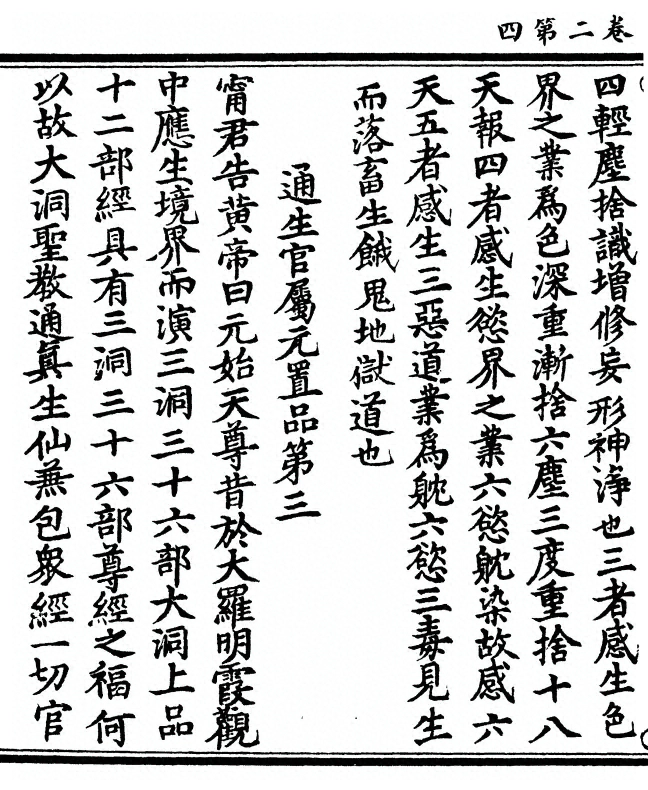 卷二第四
四輕塵捨識增修妄形神淨也三者感生色
界之業爲色深重漸捨六塵三度重捨十八
天報四者感生慾界之業六慾躭染故感六
天五者感生三惡道業爲躭六慾三毒見生
而落畜生餓鬼地獄道也
通生官屬元置品第三
甯君告黄帝曰元始天尊昔於大羅明霞觀
中應生境界而演三洞三十六部大洞上品
十二部經具有三洞三十六部尊經之福何
以故大洞聖教通真生仙蕪包衆經一切官